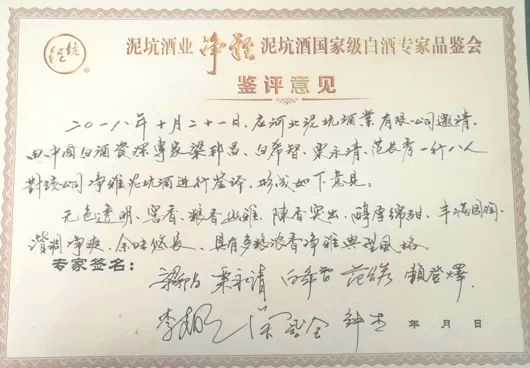 泥坑
泥坑酒业净雅泥坑酒国家级白酒专家品鉴会
鉴评意见
二0一八年十月二十一日,应河北泥坑酒业有限公司邀请,
由中国白酒资深专家梁邦昌、白希智、栗永清、范长秀一行八人
对该公司净雅泥坑酒进行鉴评,形成如下意见。
无色透明、窖香、粮香幽雅、陈香突出、醇厚绵甜、丰满圆润、
谐调净爽、余味悠长、具有多粮浓香净雅典型风格。
专家签名:
梁邦昌 栗永清 白希智 赖登燡
钟杰 年 月 日